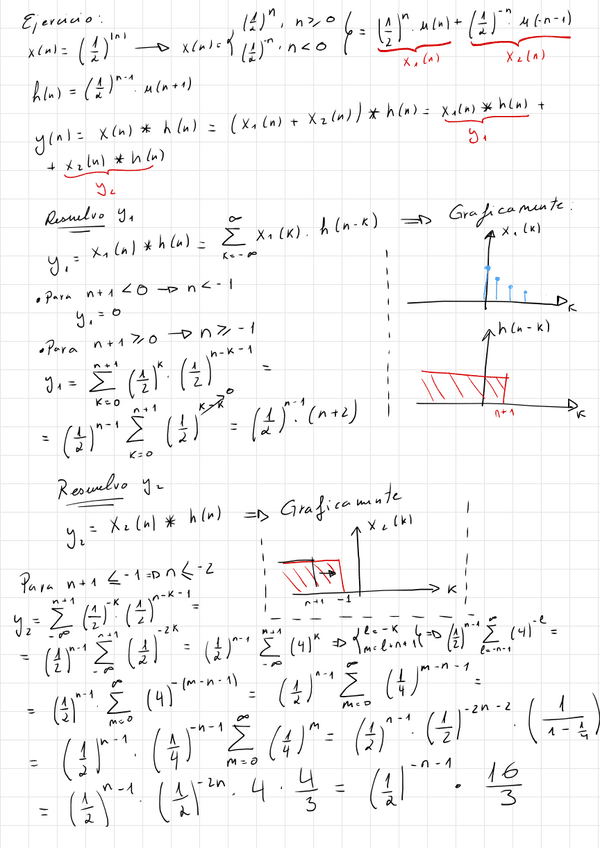 Ejercicio:
x(n) = (1/2)^|n| → x(n) = { (1/2)^n, n ≥ 0 ; (1/2)^-n, n < 0 } = (1/2)^n · u(n) + (1/2)^-n · u(-n-1)
x₁(n) x₂(n)
h(n) = (1/2)^(n-1) · u(n+1)
y(n) = x(n) * h(n) = (x₁(n) + x₂(n)) * h(n) = x₁(n) * h(n) +
y₁
+ x₂(n) * h(n)
y₂
Resuelvo y₁ ⇒ Graficamente:
y₁ = x₁(n) * h(n) = ∑_{k=-∞}^{∞} x₁(k) · h(n-k)
x₁(k)
k
• Para n+1 < 0 → n < -1
y₁ = 0
• Para n+1 ≥ 0 → n ≥ -1
h(n-k)
n+1 k
y₁ = ∑_{k=0}^{n+1} (1/2)^k · (1/2)^(n-k-1) =
= (1/2)^(n-1) ∑_{k=0}^{n+1} (1/2)^(k-k)→0 = (1/2)^(n-1) · (n+2)
Resuelvo y₂
y₂ = x₂(n) * h(n) ⇒ Graficamente
x₂(k)
n+1 -1 k
Para n+1 ≤ -1 ⇒ n ≤ -2
y₂ = ∑_{-∞}^{n+1} (1/2)^-k · (1/2)^(n-k-1) =
= (1/2)^(n-1) ∑_{-∞}^{n+1} (1/2)^(-2k) = (1/2)^(n-1) ∑_{-∞}^{n+1} (4)^k ⇒ { l = -k ; m = l+n+1 } ⇒ (1/2)^(n-1) ∑_{l=-n-1}^{∞} (4)^-l =
= (1/2)^(n-1) · ∑_{m=0}^{∞} (4)^-(m-n-1) = (1/2)^(n-1) ∑_{m=0}^{∞} (1/4)^(m-n-1) =
= (1/2)^(n-1) · (1/4)^(-n-1) ∑_{m=0}^{∞} (1/4)^m = (1/2)^(n-1) · (1/2)^(-2n-2) · (1/(1 - 1/4))
= (1/2)^(n-1) · (1/2)^(-2n) · 4 · 4/3 = (1/2)^(-n-1) · 16/3